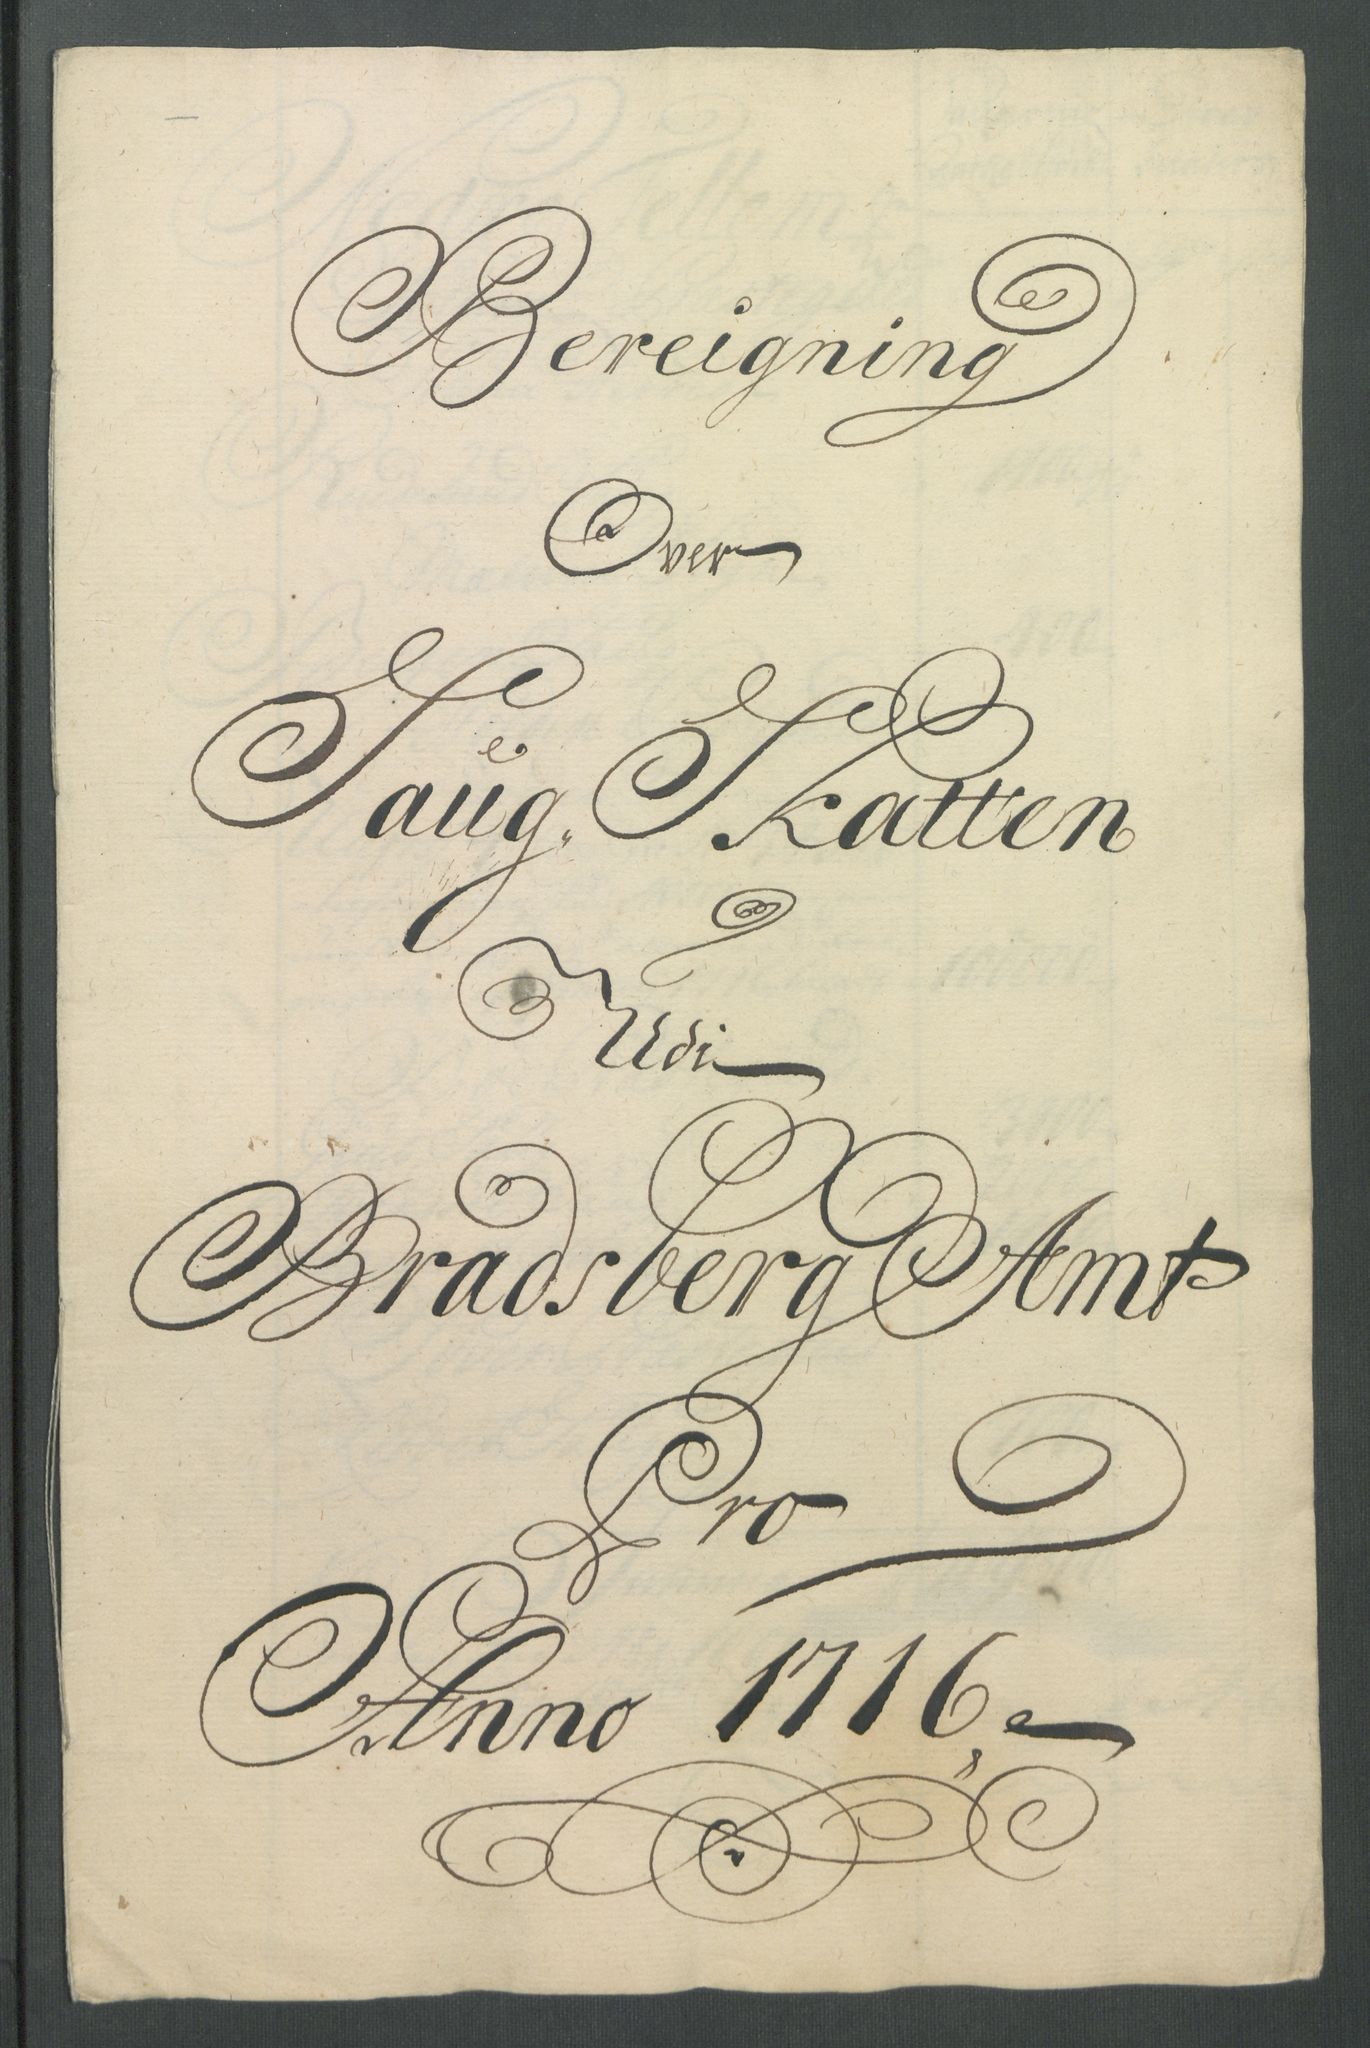 Bereigning
Over
Saüg, Skatten
Udi
Bradsberg Amt
Pro
Anno 1716